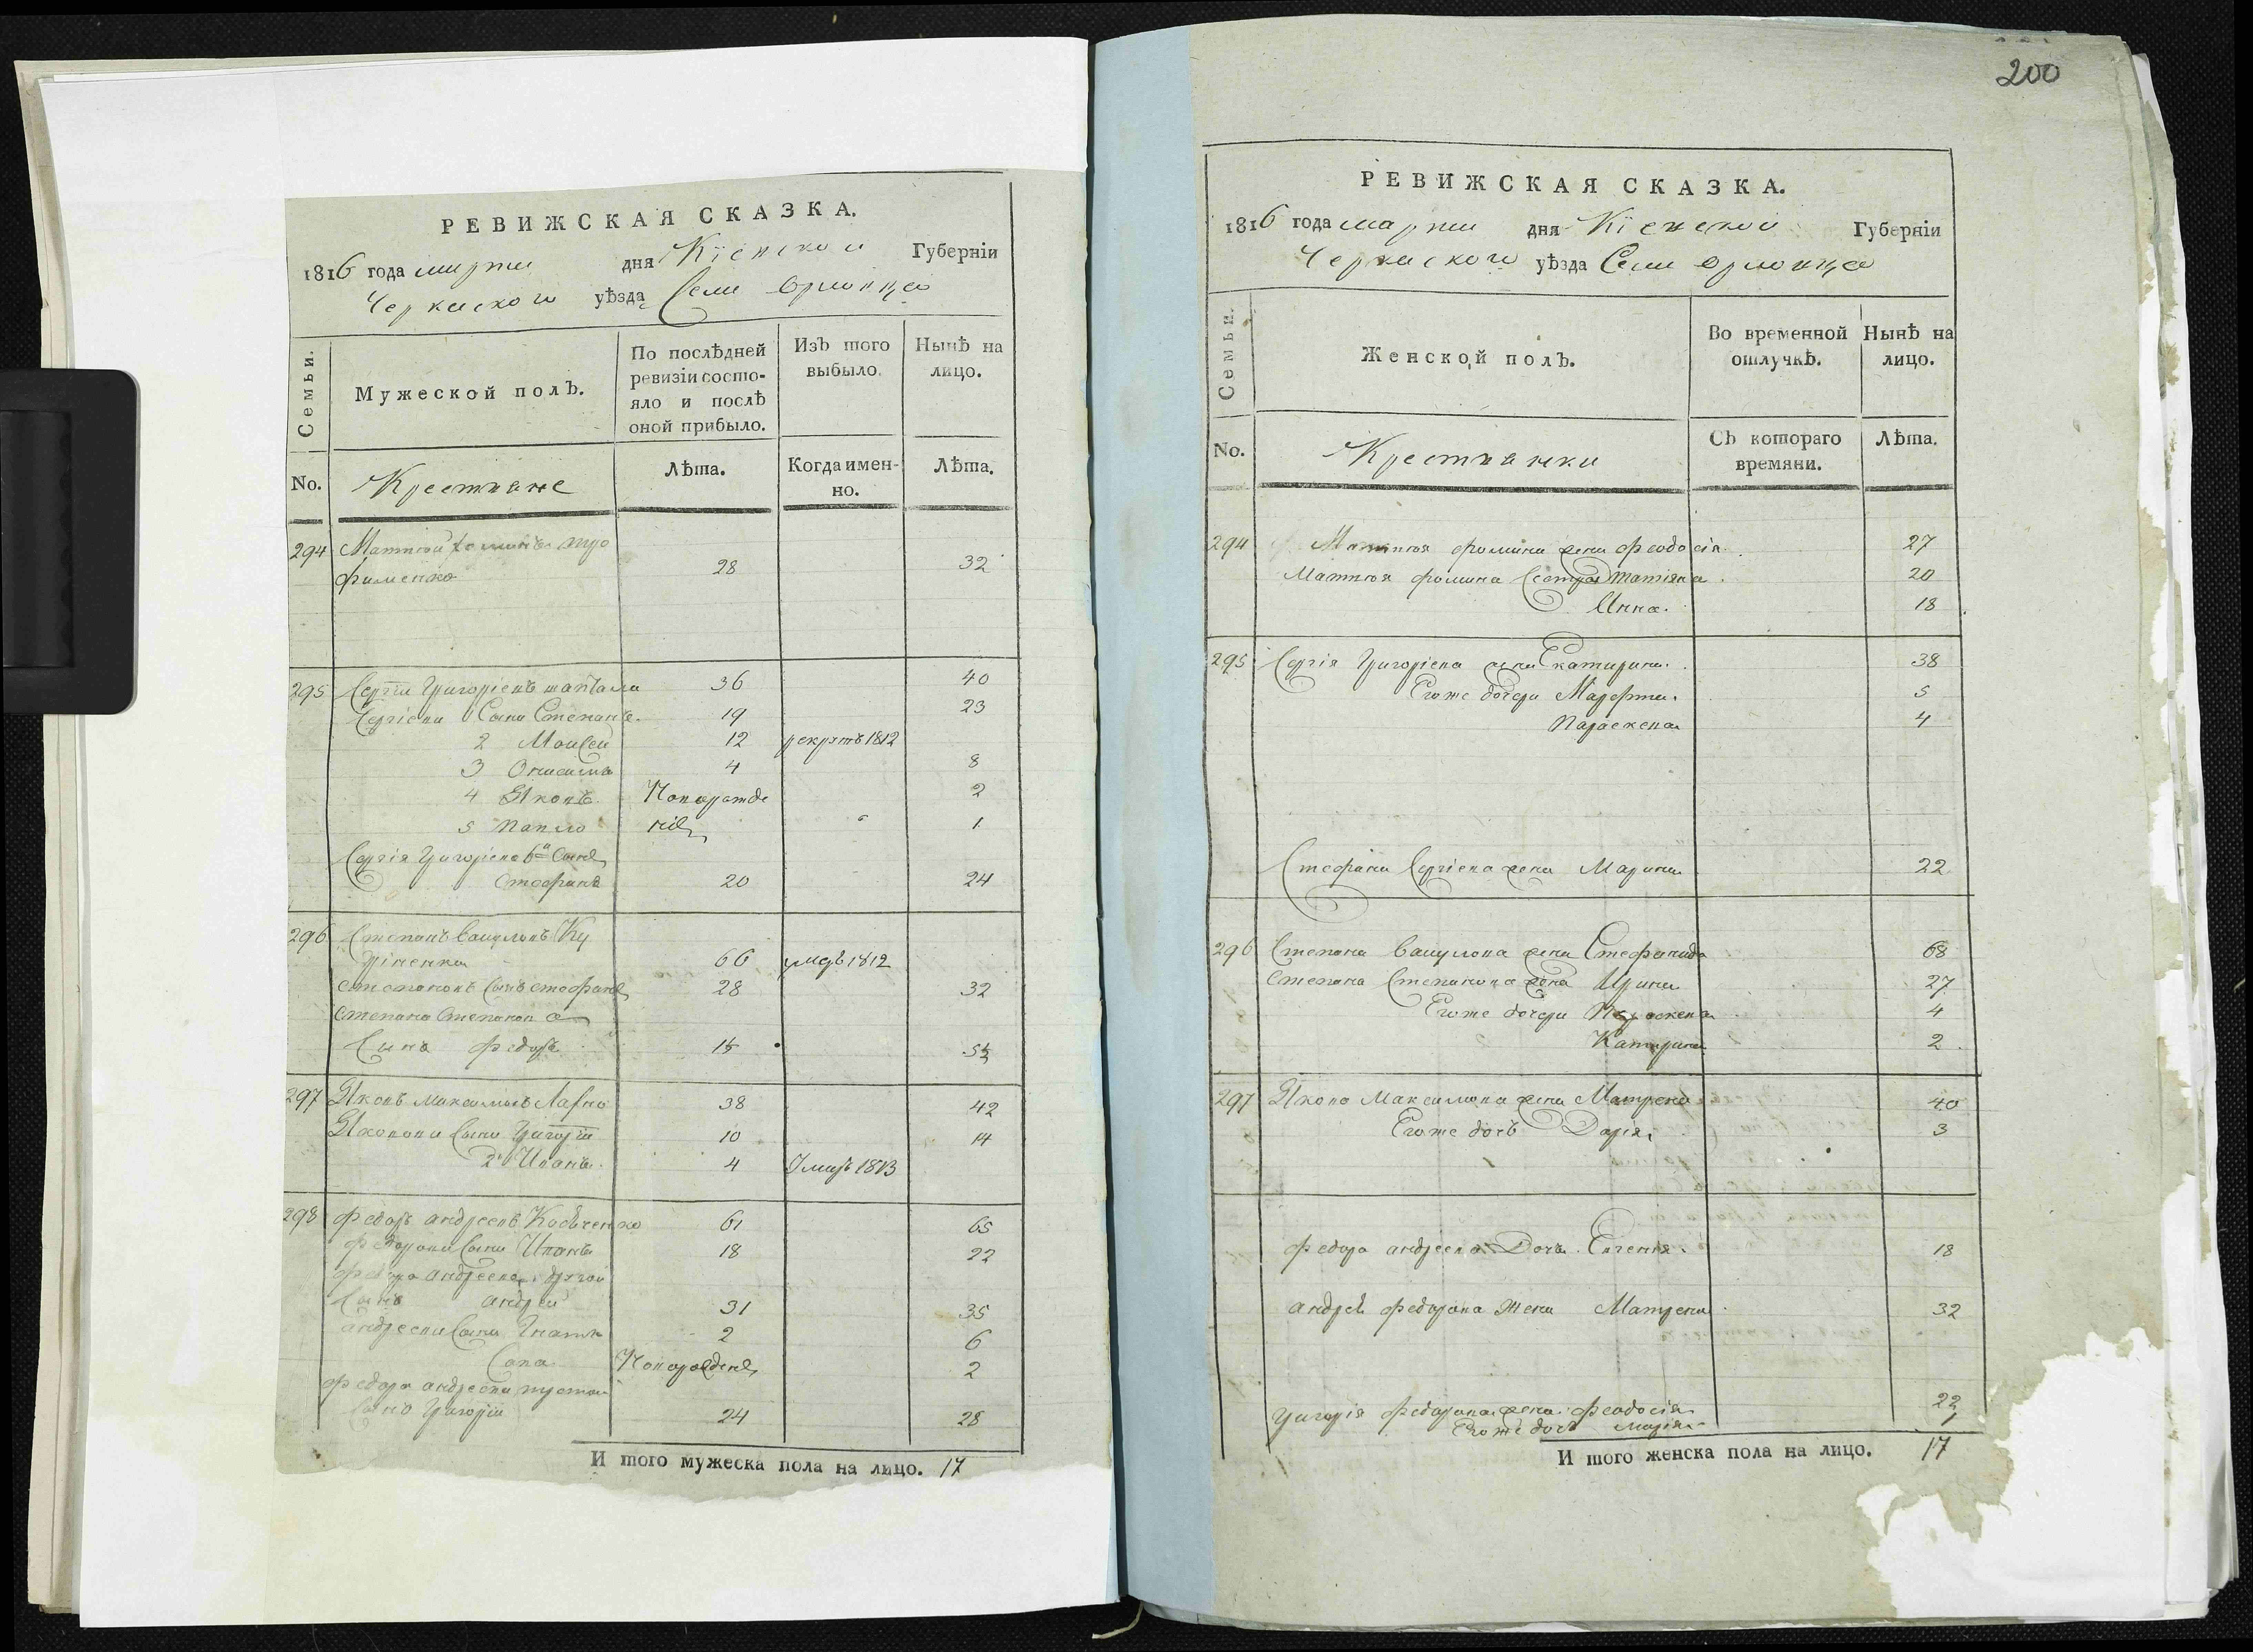 РЕВИЖСКАЯ СКАЗКА.
1816 года марта дня Кіевской Губерніи
Черкаского уѣзда Села Орловца
Семьи.
Мужеской полъ.
По послѣдней ревизіи состояло и послѣ оной прибыло.
Изъ того выбыло.
Нынѣ на лицо.
No.
Крестяне
Лѣта.
Когда именно.
Лѣта.
294 Матвей Фоминъ
фименко 28 32
295 Сергіи Григоріевъ 36 40
Сергіева Сыны Степанъ 19 23
2 Моисей 12 рекрутъ 1812
3 Онисимъ 4 8
4 Яковъ Новорожде 2
5 Павло ніе 1
Сергія Григоріева 6й Сынъ
Стефанъ 20 24
296 Степанъ Самуловъ
66 умеръ 1812
Степановъ Сынъ Стефанъ 28 32
Степана Степанова
Сынъ Федоръ
297 Яковъ Максимовъ 38 42
Яковови Сыны Григорій 10 14
2 Иванъ 4 Умеръ 1813
298 Федоръ Андреевъ 61 65
Федорови Сыны Иванъ 18 22
Федора Андреева другой
Сынъ Андрей 31 35
Андрееви Сыны Игнатъ 2 6
Сава Новорожденъ 2
Федора Андреева третій
Сынъ Григорій 24 28
И того мужеска пола на лицо. 17
200
РЕВИЖСКАЯ СКАЗКА.
1816 года марта дня Кіевской Губерніи
Черкаского уѣзда Села Орловца
Семьи.
Женской полъ.
Во временной отлучкѣ.
Нынѣ на лицо.
No.
Крестянки
Съ котораго времяни.
Лѣта.
294 Матвея Фомина жена Феодосія 27
Матвея Фомина Сестра Татіяна 20
Анна 18
295 Сергія Григоріева жена Екатирина 38
Егоже дочери Марфта 5
Параскева 4
Стефана Сергіева жена Марина 22
296 Степана Самулова жена Стефанида 68
Степана Степанова жена Ирина 27
Егоже дочери Параскева 4
Катирина 2
297 Якова Максимова жена Матрена 40
Егоже дочъ Дарія 3
Федора Андреева Дочъ Евгенія 18
Андрея Федорова Жена Матрена 32
Григорія Федорова жена Феодосія 22
Егоже дочъ Марія 1
И того женска пола на лицо. 17